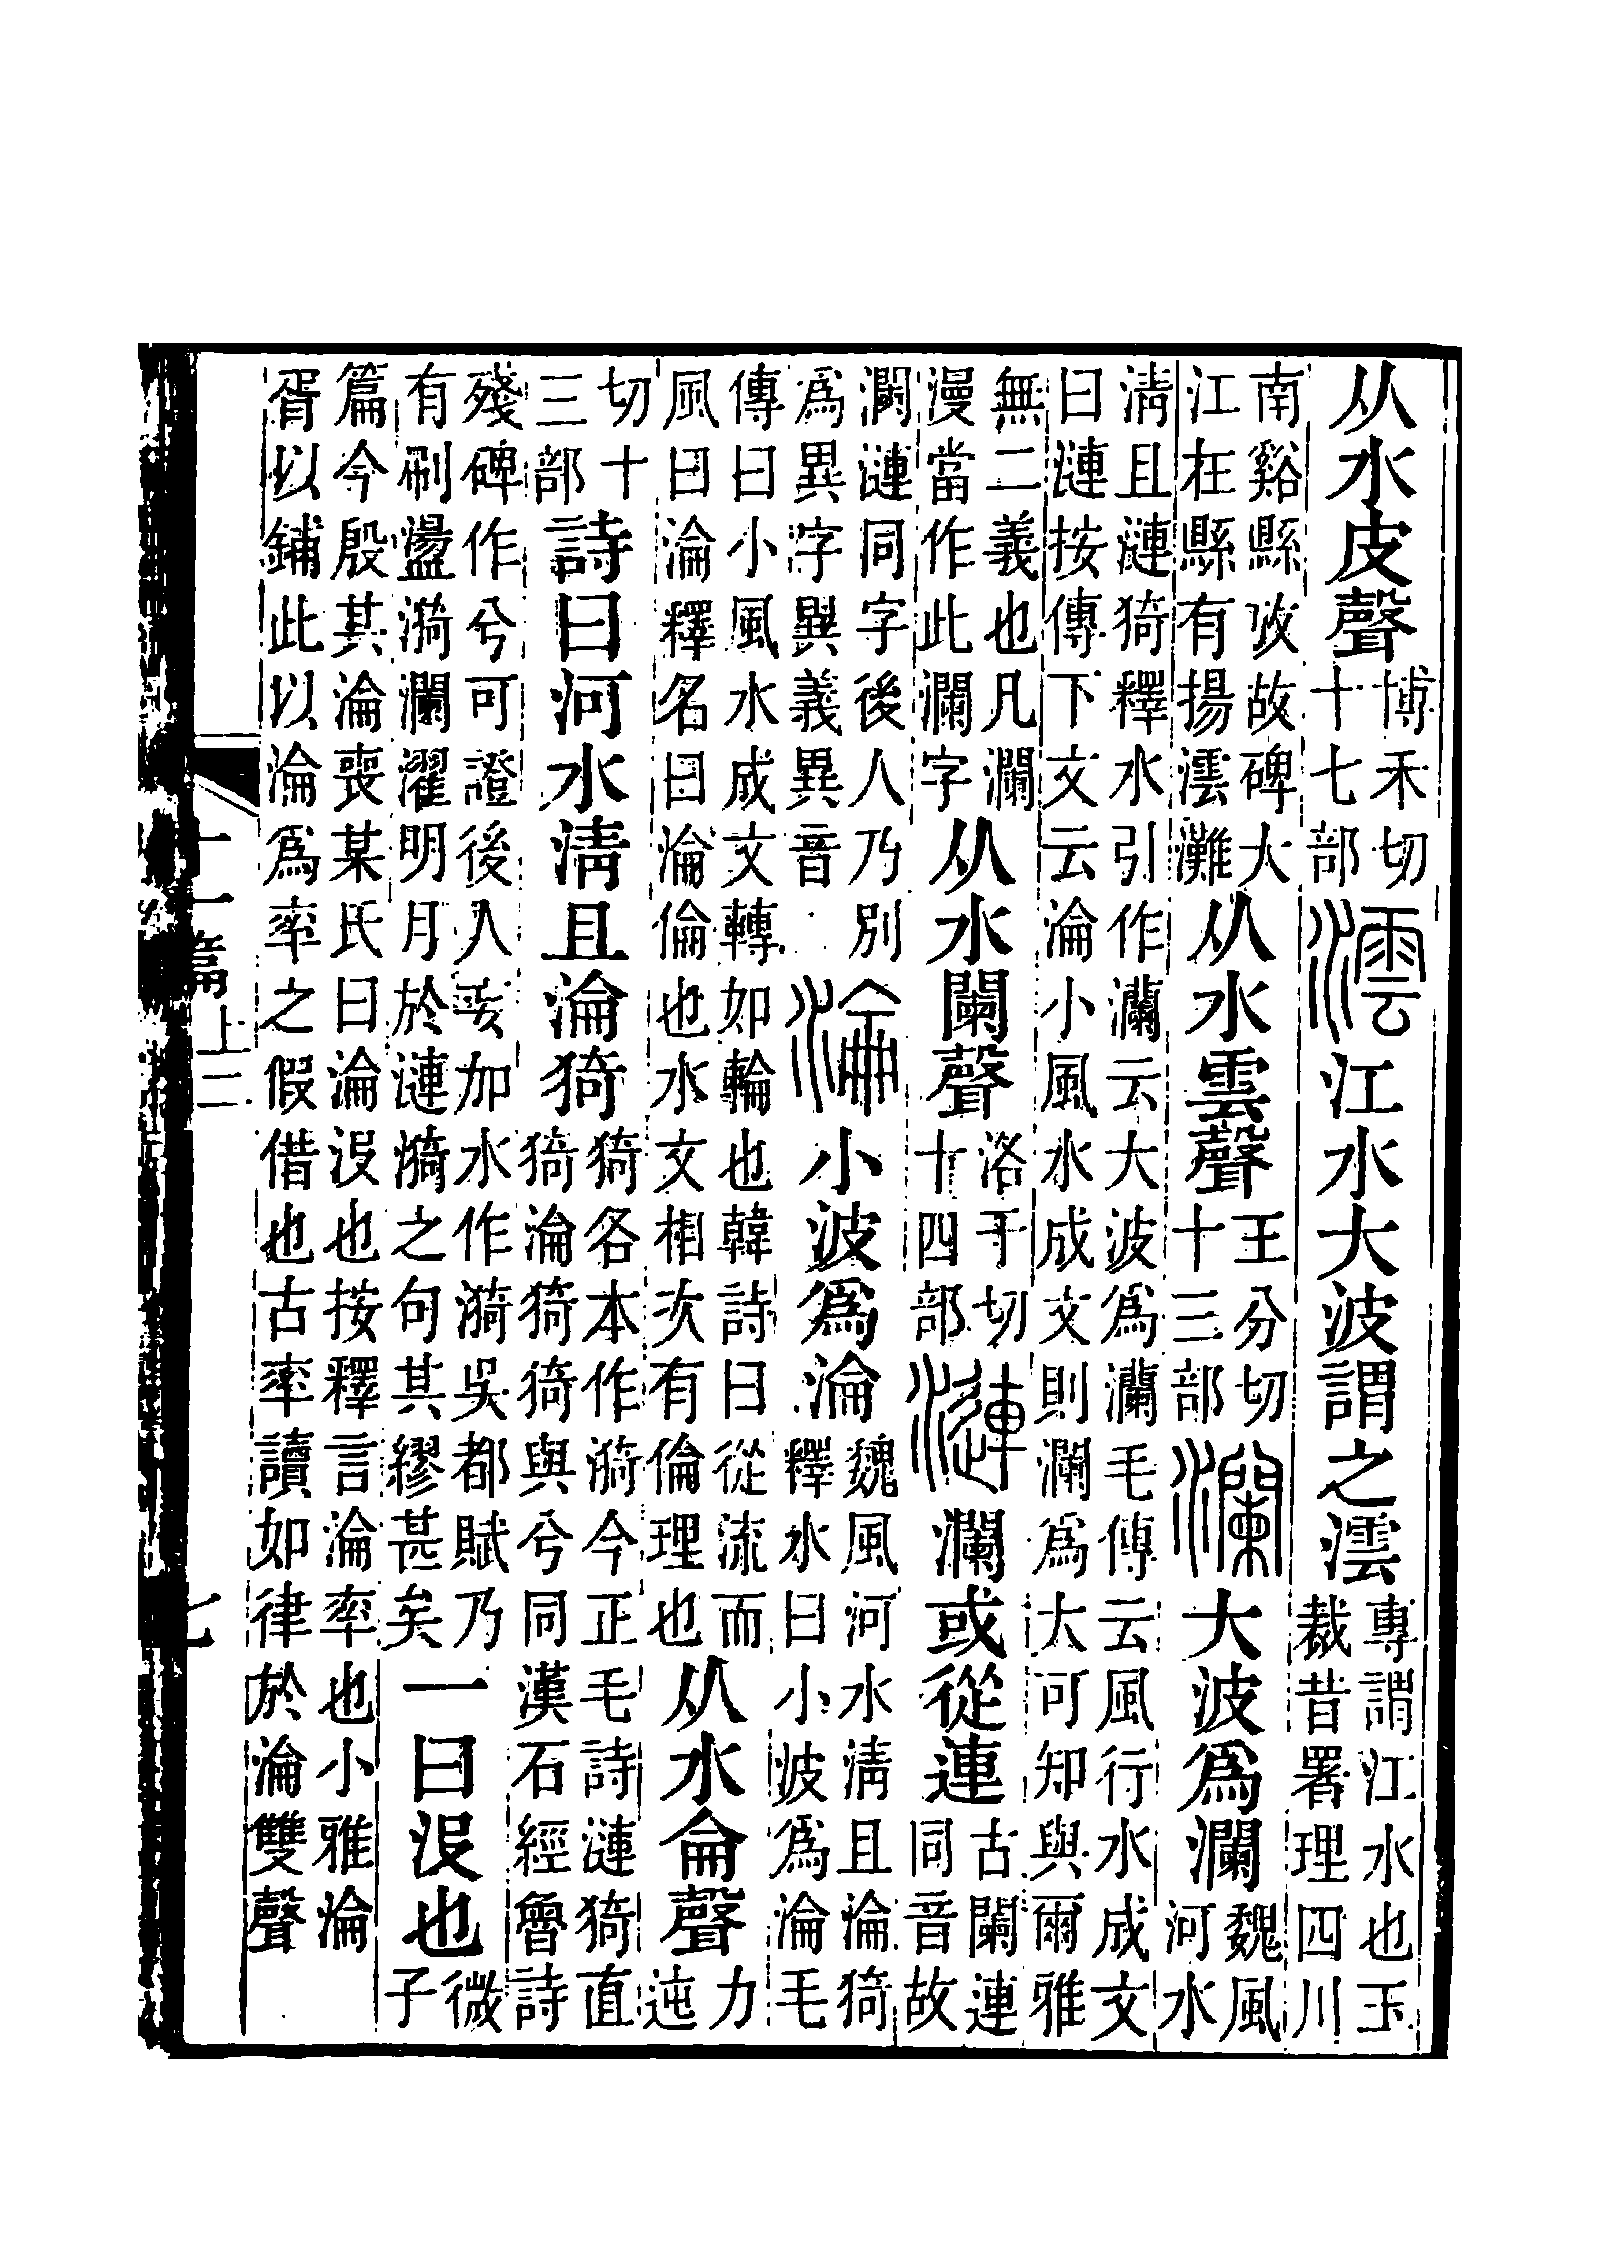 从水皮聲博禾切十七部澐江水大波謂之澐專謂江水也玉裁昔署理四川
南谿縣攷故碑大江在縣有揚澐灘从水雲聲王分切十三部瀾大波爲瀾魏風河水
清且漣猗釋水引作瀾云大波爲瀾毛傳云風行水成文曰漣按傳下文云淪小風水成文則瀾爲大可知與爾雅
無二義也凡瀾漫當作此瀾字从水闌聲洛干切十四部漣瀾或從連古闌連同音故
瀾漣同字後人乃別爲異字異義異音淪小波爲淪魏風河水清且淪猗釋水曰小波爲淪毛
傳曰小風水成文轉如輪也韓詩曰從流而風曰淪釋名曰淪倫也水文相次有倫理也从水侖聲力迍
切十三部詩曰河水清且淪猗猗各本作漪今正毛詩漣猗直猗淪猗猗與兮同漢石經魯詩
殘碑作兮可證後人妄加水作漪吳都賦乃有刷盪漪瀾濯明月於漣漪之句其繆甚矣一曰没也微子
篇今殷其淪喪某氏曰淪没也按釋言淪率也小雅淪胥以鋪此以淪爲率之假借也古率讀如律於淪雙聲
十一篇上二
七